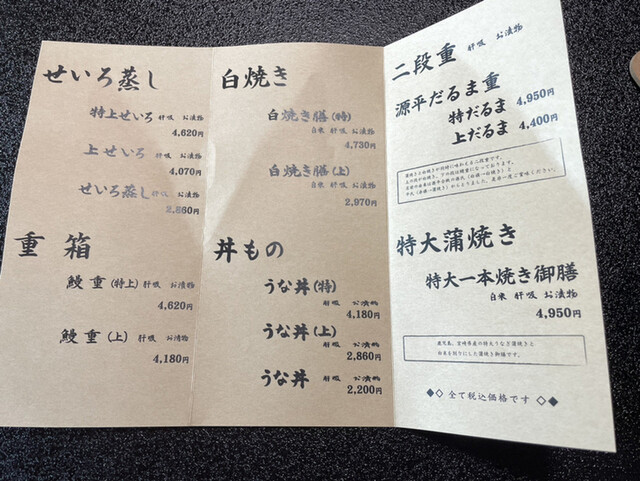 せいろ蒸し
特上せいろ 肝吸 お漬物
4,620円
上せいろ 肝吸 お漬物
4,070円
せいろ蒸し 肝吸 お漬物
2,860円
重箱
鰻重(特上) 肝吸 お漬物
4,620円
鰻重(上) 肝吸 お漬物
4,180円
白焼き
白焼き膳(特)
白米 肝吸 お漬物
4,730円
白焼き膳(上)
白米 肝吸 お漬物
2,970円
丼もの
うな丼(特)
肝吸 お漬物
4,180円
うな丼(上)
肝吸 お漬物
2,860円
うな丼 肝吸 お漬物
2,200円
二段重 肝吸 お漬物
源平だるま重
特だるま 4,950円
上だるま 4,400円
特大蒲焼き
特大一本焼き御膳
白米 肝吸 お漬物
4,950円
鹿児島、宮崎県産の特大うなぎ蒲焼きと
お米を別々にした蒲焼き御膳です。
◆◇ 全て税込価格です ◇◆